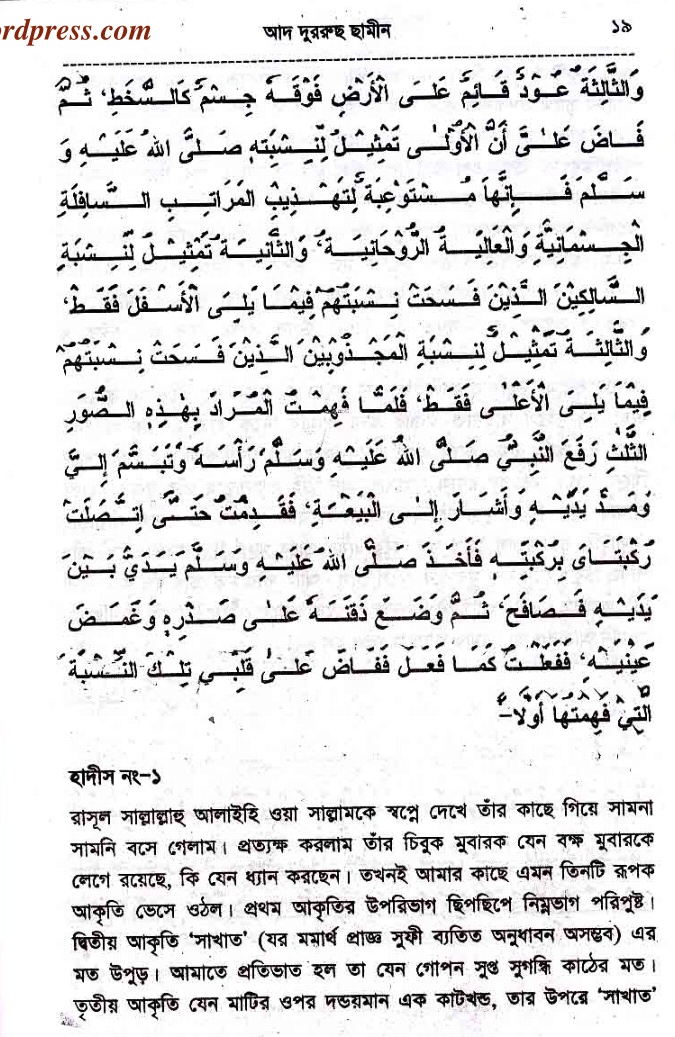 rdpress.com
আদ দুররুছ ছামীন ১৯
وَالثَّالِثَةُ عُوْدٌ قَائِمٌ عَلَى الْأَرْضِ فَوْقَهٗ جِسْمٌ كَالسَّخَطِ، ثُمَّ
فَاضَ عَلَىَّ أَنَّ الْأُوْلٰى تَمْثِيْلٌ لِّنِسْبَتِهٖ صَلَّى اللهُ عَلَيْهِ وَ
سَلَّم فَإِنَّهَا مُسْتَوْعِبَةٌ لِّتَهْذِيْبِ الْمَرَاتِبِ السَّافِلَةِ
الْجِسْمَانِيَّةِ وَالْعَالِيَةِ الرُّوْحَانِيَةِ، وَالثَّانِيَةُ تَمْثِيْلٌ لِّنِسْبَةِ
السَّالِكِيْنَ الَّذِيْنَ فَسَحَتْ نِسْبَتُهُمْ فِيْمَا يَلِىَ الْأَسْفَلَ فَقَطْ،
وَالثَّالِثَةُ تَمْثِيْلٌ لِنِسْبَةِ الْمَجْذُوْبِيْنَ الَّذِيْنَ فَسَحَتْ نِسْبَتُهُمْ
فِيْمَا يَلِىَ الْأَعْلٰى فَقَطْ، فَلَمَّا فَهِمْتُ الْمُرَادَ بِهٰذِهِ الصُّوَرِ
الثَّلٰثِ رَفَعَ النَّبِيُّ صَلَّى اللهُ عَلَيْهِ وَسَلَّمَ رَأْسَهٗ وَتَبَسَّمَ إِلَيَّ
وَمَدَّ يَدَيْهِ وَأَشَارَ إِلٰى الْبَيْعَةِ، فَقَدِمْتُ حَتّٰى اِتَّصَلَتْ
رُكْبَتَاىَ بِرُكْبَتِهٖ فَأَخَذَ صَلَّى اللهُ عَلَيْهِ وَسَلَّمَ يَدَيَّ بَيْنَ
يَدَيْهِ فَصَافَحَ، ثُمَّ وَضَعَ ذَقَنَهٗ عَلٰى صَدْرِهٖ وَغَمَضَ
عَيْنَيْهِ، فَفَعَلْتُ كَمَا فَعَلَ فَفَاضَ عَلٰى قَلْبِي تِلْكَ النِّسْبَةُ
الَّتِيْ فَهِمْتُهَا أَوَّلًا-
হাদীস নং-১
রাসূল সাল্লাল্লাহু আলাইহি ওয়া সাল্লামকে স্বপ্নে দেখে তাঁর কাছে গিয়ে সামনা
সামনি বসে গেলাম। প্রত্যক্ষ করলাম তাঁর চিবুক মুবারক যেন বক্ষ মুবারকে
লেগে রয়েছে, কি যেন ধ্যান করছেন। তখনই আমার কাছে এমন তিনটি রূপক
আকৃতি ভেসে ওঠল। প্রথম আকৃতির উপরিভাগ ছিপছিপে নিম্নভাগ পরিপুষ্ট।
দ্বিতীয় আকৃতি ‘সাখাত’ (যর মমার্থ প্রাজ্ঞ সূফী ব্যতিত অনুধাবন অসম্ভব) এর
মত উপুড়। আমাতে প্রতিভাত হল তা যেন গোপন সুপ্ত সুগন্ধি কাঠের মত।
তৃতীয় আকৃতি যেন মাটির ওপর দন্ডয়মান এক কাটখন্ড, তার উপরে ‘সাখাত’